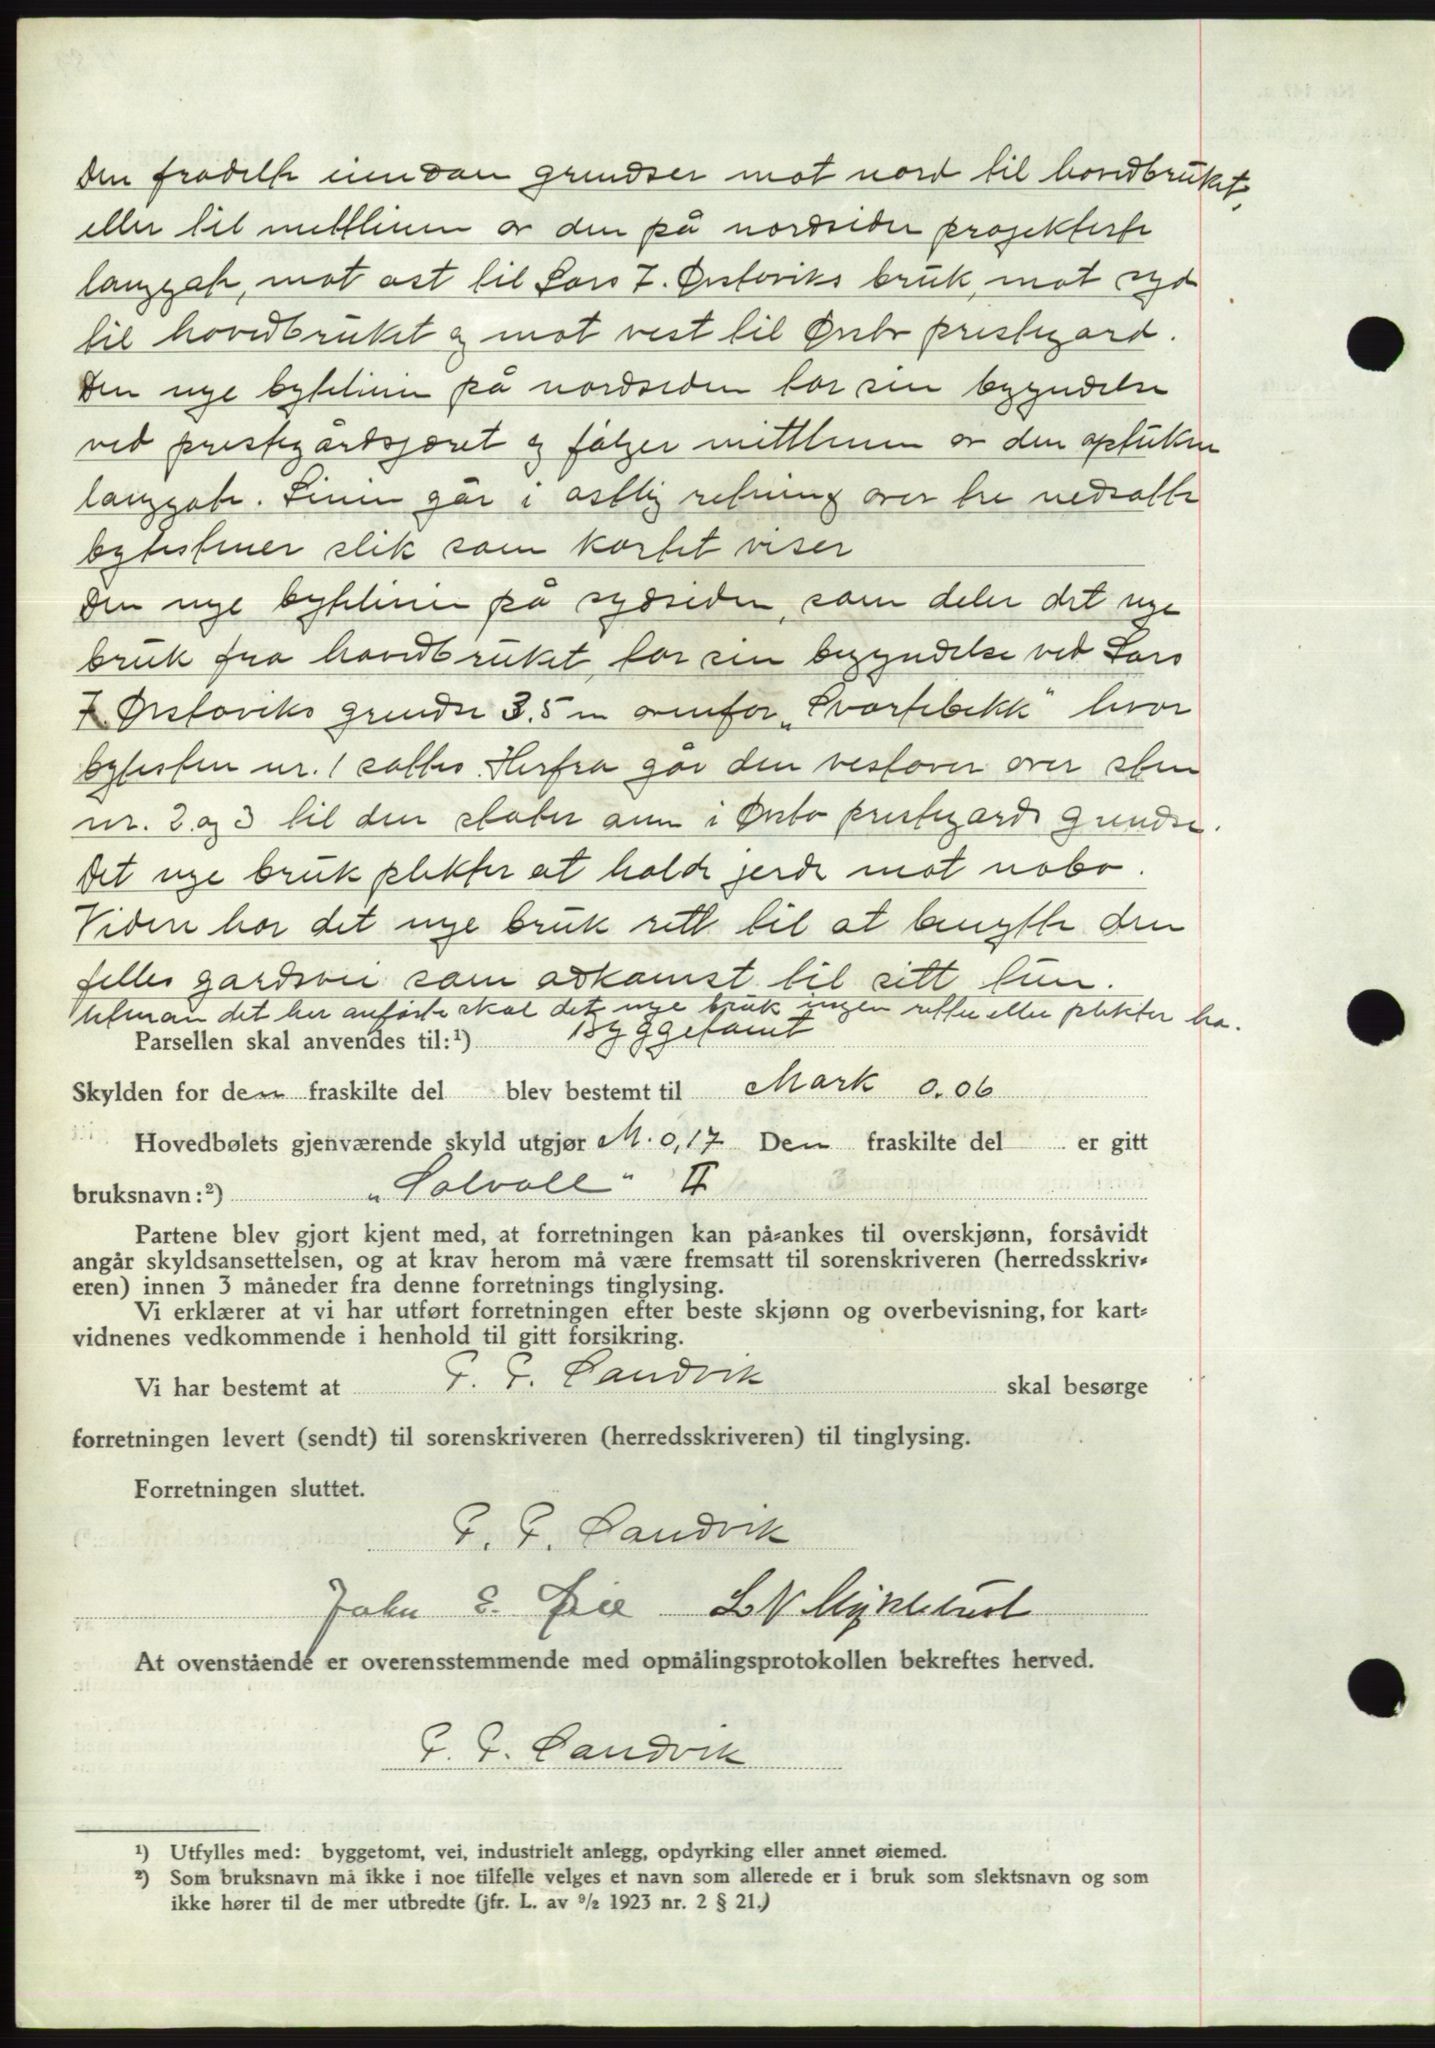 Den fradelte eiendom grendser mot nord til hovedbruket,
eller til mittlinien av den på nordsiden projekterte
langgate, mot øst til Lars T. Ørstaviks bruk, mot syd
til hovedbruket og mot vest til Ørsta prestegard.
Den nye bytelinie på nordsiden tar sin begyndelse
ved prestegårdsgjæret og følger mittlinien av den opstukne
langgate. Linien går i østlig retning over tre nedsatte
bytestener slik som kartet viser
Den nye bytelinie på sydsiden, som deler det nye
bruk fra hovedbruket, tar sin begyndelse ved Lars
T. Ørstaviks grendse 3.5 m ovenfor „Svartebekk" hvor
bytesten nr. 1 sattes. Herfra går den vestover over sten
nr. 2 og 3 til den støter an i Ørsta prestegards grendse.
Det nye bruk plikter at holde jerde mot nabo.
Videre har det nye bruk rett til at benytte den
felles gardsvei som adkomst til sitt tun.
Utenom det her anførte skal det nye bruk ingen retter eller plikter ha.
Parsellen skal anvendes til:¹) Byggetomt
Skylden for den fraskilte del blev bestemt til Mark 0.06
Hovedbølets gjenværende skyld utgjør M. 0,17 Den fraskilte del er gitt
bruksnavn:²) „Solvoll" II
Partene blev gjort kjent med, at forretningen kan på-ankes til overskjønn, forsåvidt
angår skyldsansettelsen, og at krav herom må være fremsatt til sorenskriveren (herredsskriv-
eren) innen 3 måneder fra denne forretnings tinglysing.
Vi erklærer at vi har utført forretningen efter beste skjønn og overbevisning, for kart-
vidnenes vedkommende i henhold til gitt forsikring.
Vi har bestemt at P. P. Sandvik skal besørge
forretningen levert (sendt) til sorenskriveren (herredsskriveren) til tinglysing.
Forretningen sluttet.
P. P. Sandvik
John E. Øie L N Myklebust
At ovenstående er overensstemmende med opmålingsprotokollen bekreftes herved.
P. P. Sandvik
¹) Utfylles med: byggetomt, vei, industrielt anlegg, opdyrking eller annet øiemed.
²) Som bruksnavn må ikke i noe tilfelle velges et navn som allerede er i bruk som slektsnavn og som
ikke hører til de mer utbredte (jfr. L. av ⁹/₂ 1923 nr. 2 § 21.)